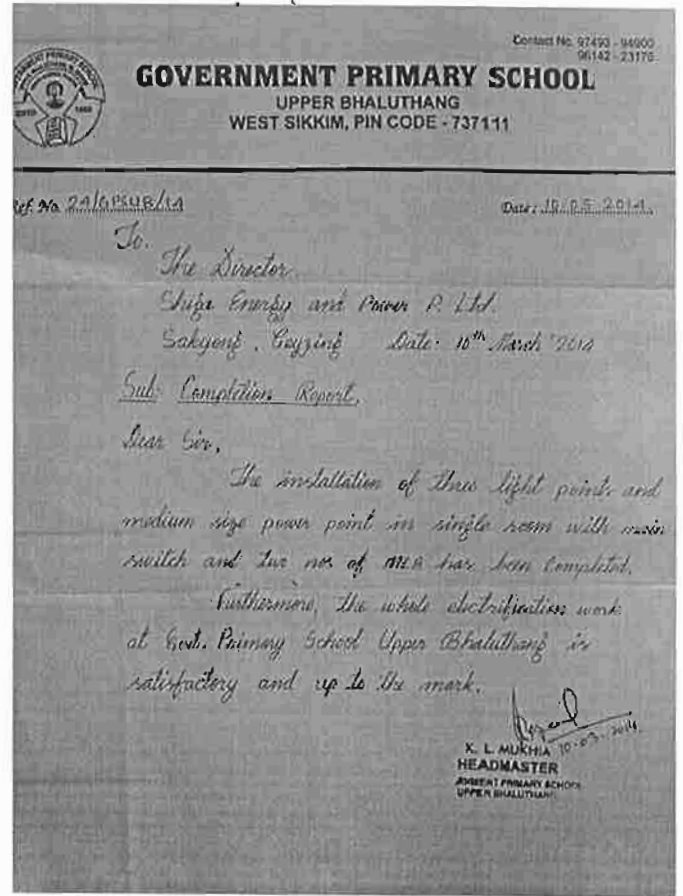 Contact No. 97493 - 94900
96142 - 23176
GOVERNMENT PRIMARY SCHOOL
UPPER BHALUTHANG
WEST SIKKIM, PIN CODE - 737111
ESTD 1989
Ref. No. 24/GPSUB/14
Date: 10.03.2014.
To.
The Director
Shiga Energy and Power P. Ltd.
Sakyong, Geyzing Date: 10th March 2014
Sub: Completion Report.
Dear Sir,
The installation of three light points and
medium size power point in single room with main
switch and two nos of has been completed.
Furthermore, the whole electrification work
at Govt. Primary School Upper Bhaluthang is
satisfactory and up to the mark.
10-03-2014
K. L. MUKHIA
HEADMASTER
PRIMARY SCHOOL
UPPER BHALUTHANG